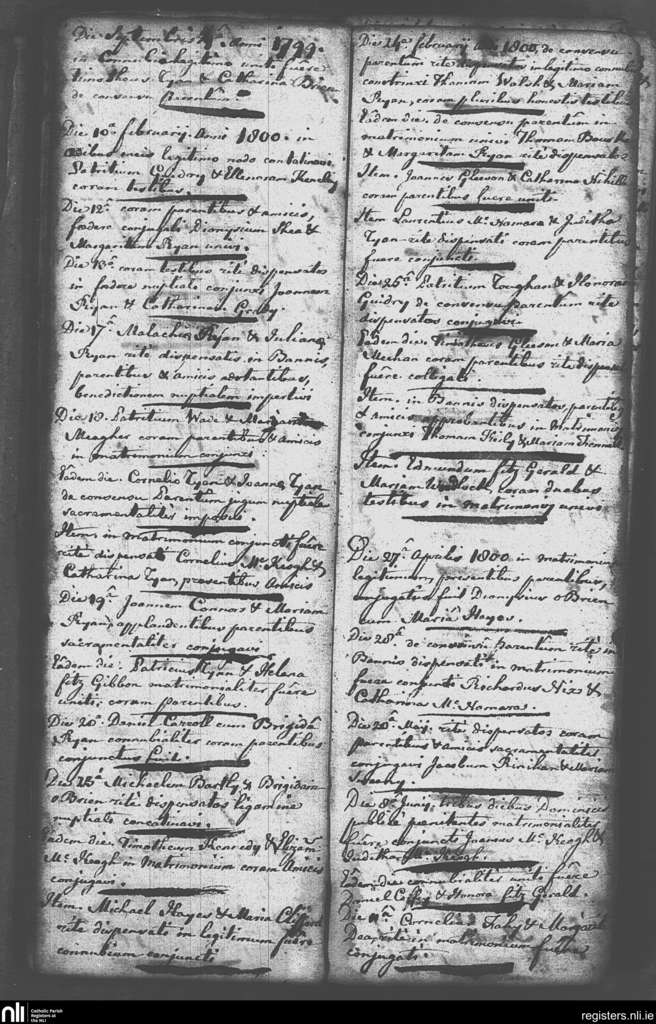 Die Septembris Anni 1799.
in Connubio legitimo uniti fuére
Timotheus Ryan & Catharina Brien
de consensu parentum.
Die 10ª february Anni 1800. in
ædibus meis legitimo nodo
Patritium Guidry & Ellenoram
coram testibus.
Die 12ª coram parentibus & amicis,
fœdere conjugali Dionysium Shea &
Margaritam Ryan univi.
Die 13ª coram testibus rité dispensatos
in fœdere nuptiale conjunxi Joannem
Ryan & Catharinam Grady.
Die 17ª Malachia Ryan & Juliana
Ryan rité dispensatis in Bannis,
parentibus & amicis adstantibus,
benedictionem nuptialem impertivi
Die 18. Patritium Wade & Margaritam
Meagher coram parentibus & amicis
in matrimonium conjunxi
Eadem die. Cornelio Ryan & Joanna Ryan
de consensu Parentum jugum nuptiale
sacramentaliter imposui.
Item. in matrimonium conjuncti fuére
rité dispensati Cornelius McKeogh &
Catharina Ryan presentibus Amicis
Die 19ª Joannem Connors & Mariam
Ryan, applaudentibus parentibus
sacramentaliter conjugavi
Eadem die. Patricius Ryan & Helena
fitz Gibbon matrimonialiter fuére
uniti, coram parentibus.
Die 20ª Daniel Carroll cum Brigida
Ryan connubialiter coram parentibus
conjunctus fuit.
Die Michaelem Bartly & Brigidam
oBrien rité dispensatos ligamine
nuptiale concatinavi.
Eadem die Timotheum Kennedy &
Mc Keogh in Matrimonium coram Amicis
conjugavi.
Item. Michael Hayes & Maria
rité dispensati in legitimum fuére
connubium conjuncti
Die 24ª february Anni 1800. de consensu
parentum rite dispensatos in legitimo connubio
constrinxi Thomam Walsh & Mariam
Ryan, coram pluribus honestis testibus
Eâdem die. de consensu parentûm in
matrimonium univi Thomam Bourke
& Margaritam Ryan rité dispensatos
Item. Joannes Gleeson & Catharina
coram parentibus fuere uniti.
Item Laurentius Mc Namara & Juditha
Ryan rité dispensati coram parentibus
fuere conjuncti.
Die 25ª Patritium & Honoram
Guidry de consensu parentum rite
dispensatos conjugavi.
Eâdem die. Timotheus Gleeson & Maria
Meehan coram parentibus rité dispensati
fuére colligati.
Item. in Bannis dispensatos parentibus
& amicis approbantibus in Matrimonium
conjunxi Thomam & Mariam
Item. Edmundum fitz Gerald &
Mariam coram duobus
testibus in matrimony univi
Die 27ª Aprilis 1800. in matrimonium
legitimum, presentibus parentibus,
conjugatus fuit Dionysius oBrien
cum Mariâ Hayes.
Die 28ª de consensu Parentûm rité in
Bannis dispensati in matrimonium
fuere conjuncti Richardus Hix &
Catharina Mc Namara.
Die Maij. rité dispensatos coram
parentibus & amicis sacramentaliter
conjugavi Jacobum & Mariam
Die 8ª Junij, tribus diebus Dominicis
publicé matrimonialiter
fuére conjuncti Joannes Mc Keogh &
Juditha Keogh.
Eâdem die connubialiter uniti fuére
Daniel & Honora fitz Gerald.
Die 11ª Cornelius & Margarita
in matrimonium fuére
conjugati.
nli
Catholic Parish
Registers at
the NLI
registers.nli.ie